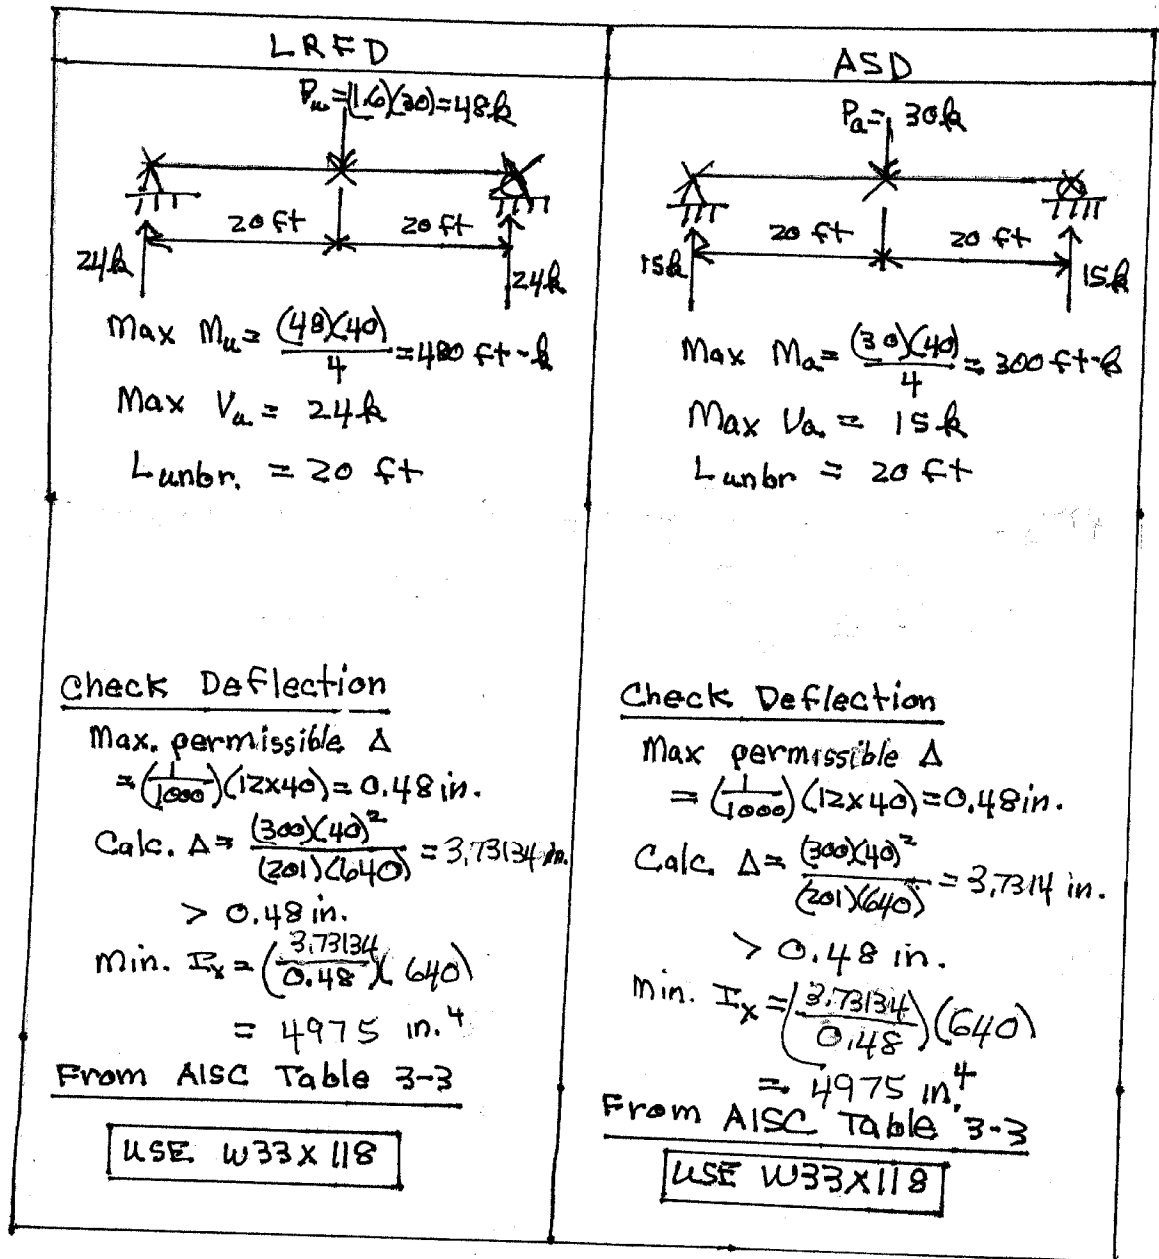 LRFD
Pu = (1.6)(30) = 48k
20 ft 20 ft
24k 24k
Max Mu = (48)(40)/4 = 480 ft-k
Max Vu = 24k
Lunbr. = 20 ft
Check Deflection
Max. permissible Δ
= (1/1000)(12x40) = 0.48 in.
Calc. Δ = (300)(40)²/(201)(640) = 3.73134 in.
> 0.48 in.
Min. Ix = (3.73134/0.48)(640)
= 4975 in.⁴
From AISC Table 3-3
USE W33x118
ASD
Pa = 30k
20 ft 20 ft
15k 15k
Max Ma = (30)(40)/4 = 300 ft-k
Max Va = 15k
Lunbr = 20 ft
Check Deflection
Max permissible Δ
= (1/1000)(12x40) = 0.48 in.
Calc. Δ = (300)(40)²/(201)(640) = 3.7314 in.
> 0.48 in.
Min. Ix = (3.73134/0.48)(640)
= 4975 in.⁴
From AISC Table 3-3
USE W33x118